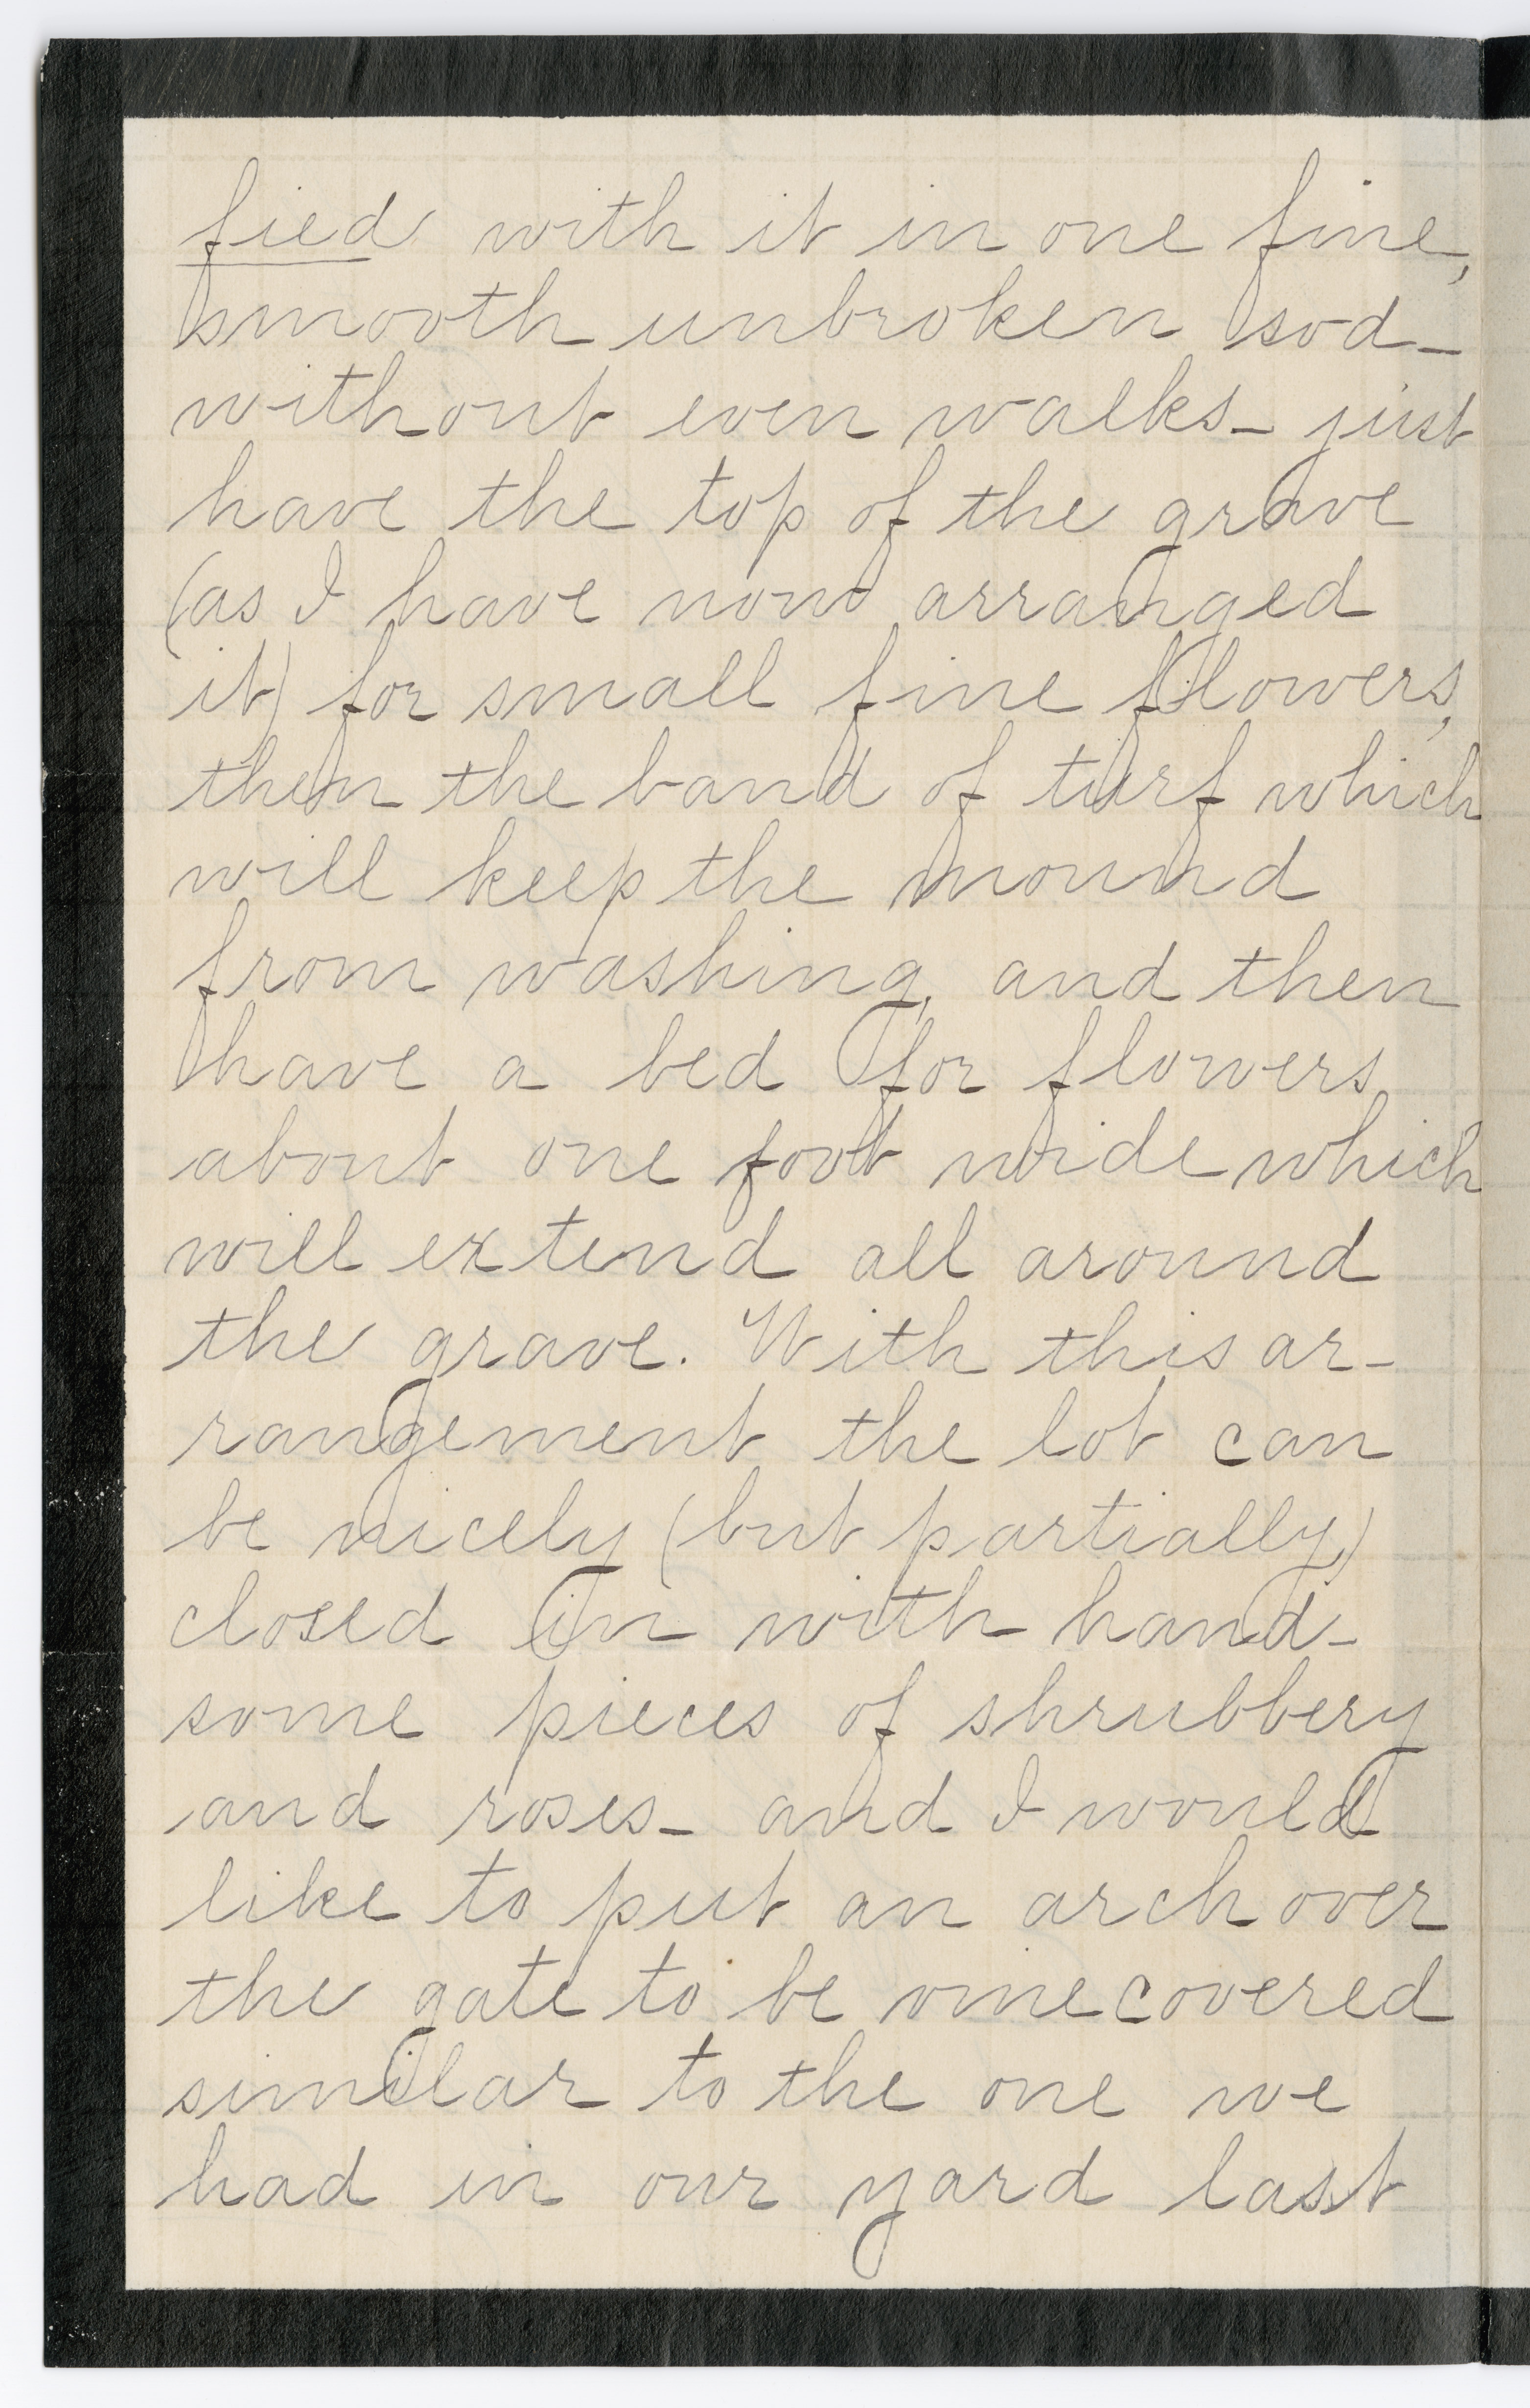 fied with it in one fine,
smooth unbroken sod_
without even walks_ just
have the top of the grave
(as I have now arranged
it) for small fine flowers,
then the band of turf which
will keep the mound
from washing, and then
have a bed for flowers
about one foot wide which
will extend all around
the grave. With this ar-
rangement the lot can
be nicely (but partially)
closed in with hand-
some pieces of shrubbery
and roses_ and I would
like to put an arch over
the gate to be vinecovered
similar to the one we
had in our yard last